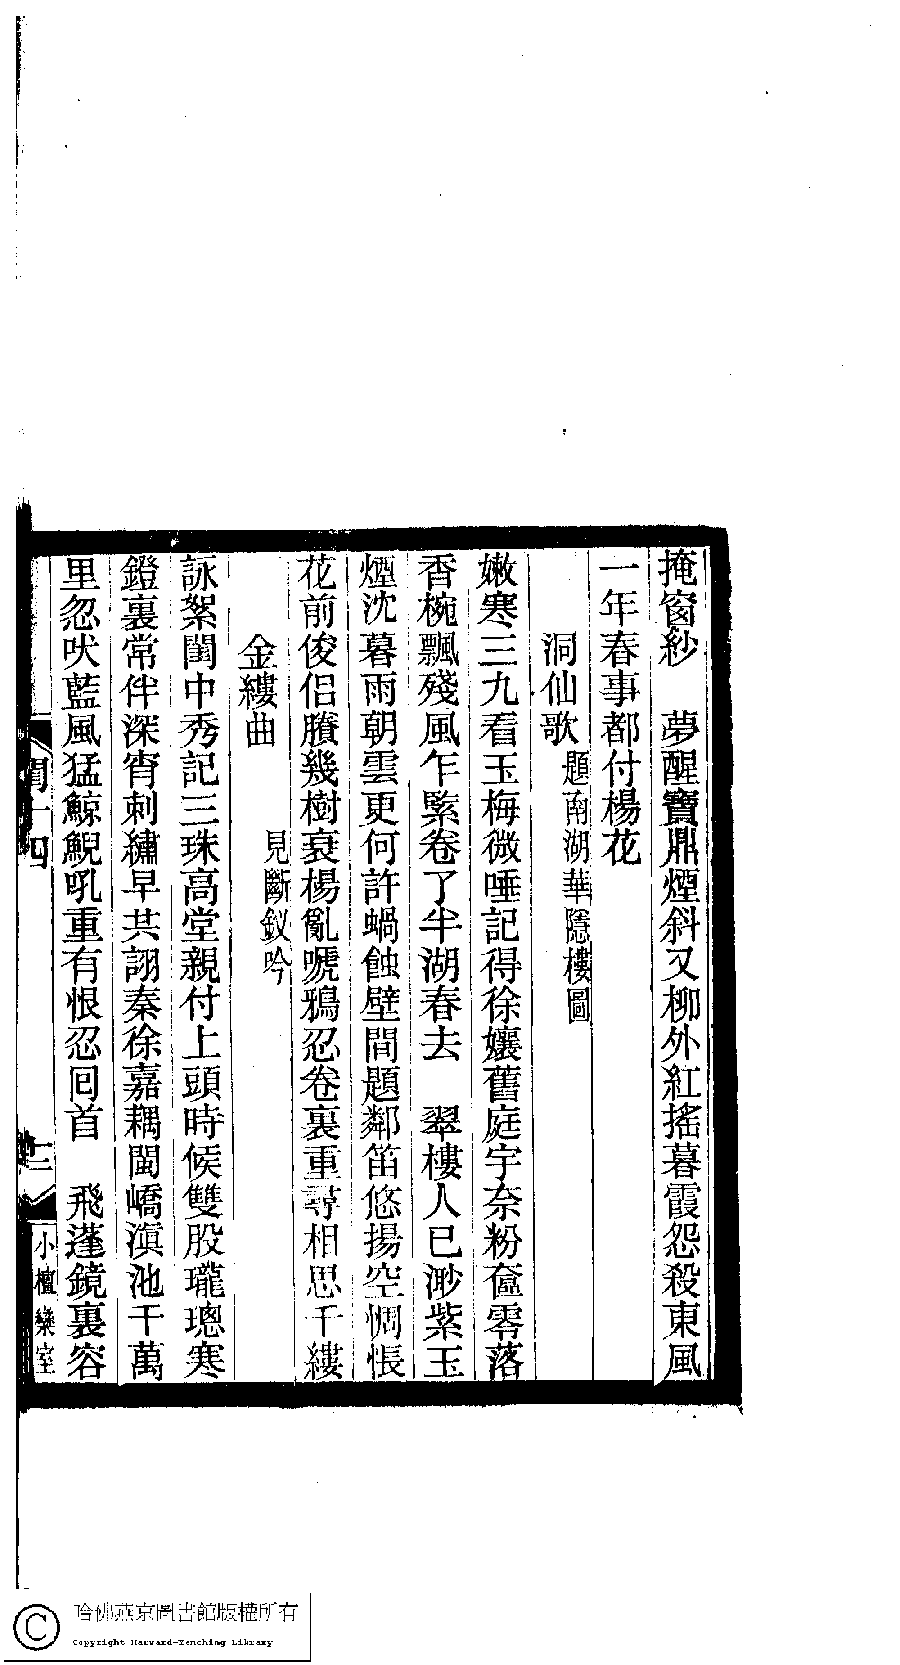 掩窗紗　夢醒寶鼎煙斜又柳外紅搖暮霞怨殺東風
一年春事都付楊花
洞仙歌 題南湖華隱樓圖
嫩寒三九看玉梅微唾記得徐孃舊庭宇奈粉奩零落
香椀飄殘風乍緊卷了半湖春去　翠樓人已渺紫玉
煙沈暮雨朝雲更何許蝸蝕壁間題鄰笛悠揚空惆悵
花前俊侶賸幾樹衰楊亂嗁鴉忍卷裏重尋相思千縷
金縷曲 見斷釵吟
詠絮閨中秀記三珠高堂親付上頭時候雙股瓏璁寒
鐙裏常伴深宵刺繡早共詡秦徐嘉耦閩嶠滇池千萬
里忽吠藍風猛鯨鯢吼重有恨忍回首　飛蓬鏡裏容
閨十四
三
小檀欒室
哈佛燕京圖書館版權所有
Copyright Harvard-Yenching Library